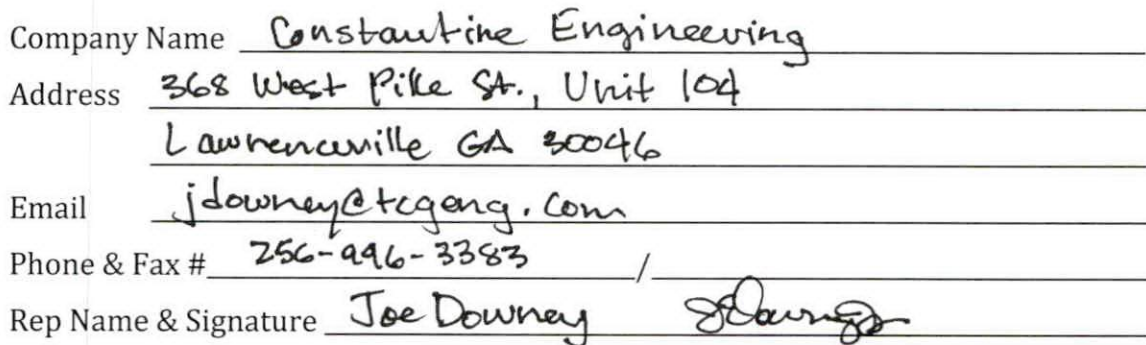 Company Name Constantine Engineering
Address 368 West Pike St., Unit 104
Lawrenceville GA 30046
Email jdowney@tcgeng.com
Phone & Fax # 256-996-3383 /
Rep Name & Signature Joe Downey JDowney